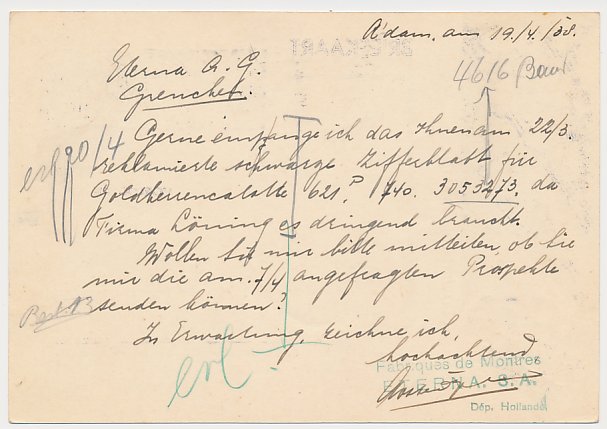 A'dam, am 19/4/38.
Eterna A. G.
Grenchen.
4616
Gerne empfange ich das Ihnen am 22/3.
reklamierte schwarze Zifferblatt für
Goldherrencalotte 621, 740. 3053273. da
Firma Löning es dringend braucht.
Wollen Sie mir bitte mitteilen, ob Sie
mir die am 7/4 angefragten Prospekte
senden können?
In Erwartung, zeichne ich,
hochachtend
erl.
Fabriques de Montres
ETERNA. S.A.
Dép. Hollande